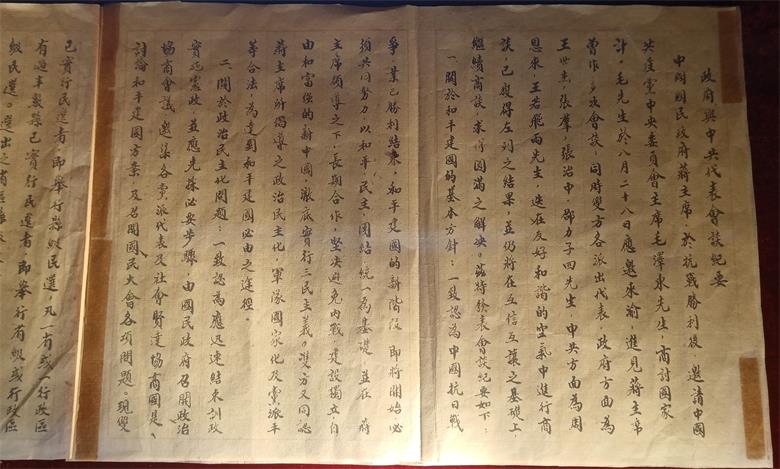 政府與中共代表會談紀要
中國國民政府蔣主席於抗戰勝利後，邀請中國
共產黨中央委員會主席毛澤東先生，商討國家
計。毛先生於八月二十八日應邀來渝，進見蔣主席
曾作多次會談，同時雙方各派出代表，政府方面為
王世杰，張羣，張治中，邵力子四先生，中共方面為周
恩來，王若飛兩先生，迭在友好和諧的空氣中進行商
談，已獲得左列之結果，並仍將在互信互讓之基礎上，
繼續商談，求得圓滿之解決。茲特發表會談紀要如下
一、關於和平建國的基本方針：一致認為中國抗日戰
爭業已勝利結束，和平建國的新階段，即將開始，必
須共同努力，以和平，民主，團結，統一為基礎，並在 蔣
主席領導之下，長期合作，堅決避免內戰，建設獨立自
由和富強的新中國，澈底實行三民主義。雙方又同認
蔣主席所倡導之政治民主化，軍隊國家化及黨派平
等合法，為達到和平建國必由之途徑。
二、關於政治民主化問題：一致認為應迅速結束訓政
實施憲政，並應先採必要步驟，由國民政府召開政治
協商會議，邀集各黨派代表及社會賢達協商國是、
討論和平建國方案，及召開國民大會各項問題。現雙
已實行民選者，即舉行縣級民選，凡一省或一行政區
有過半數縣已實行民選者，即舉行省級或行政區
級民選。選出之省區